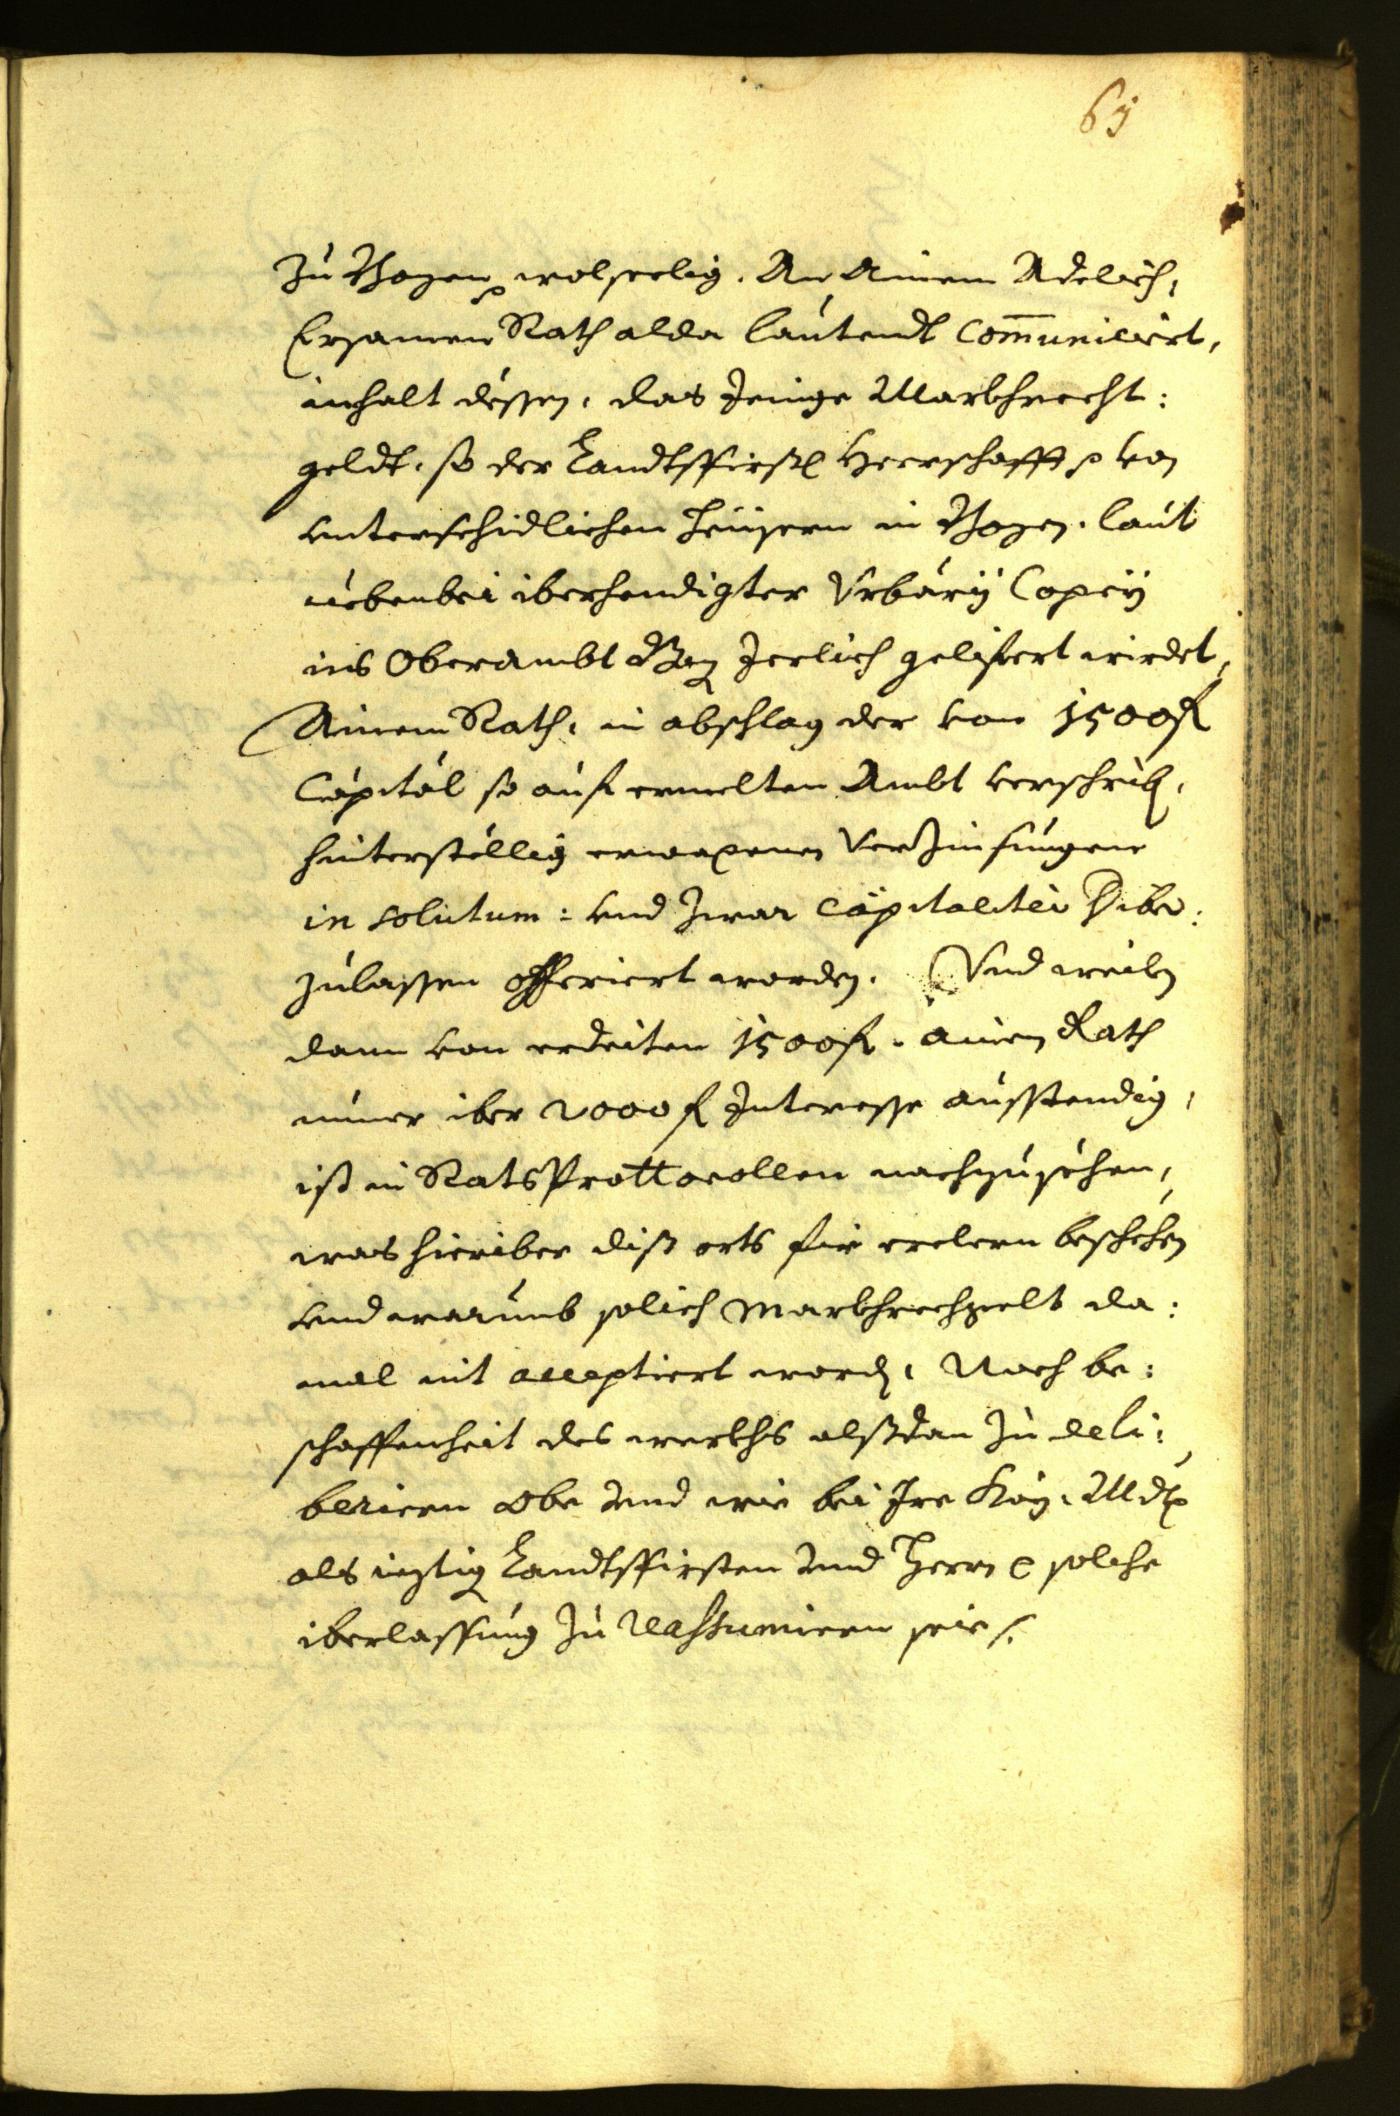 65
zu Bozen wolseelig. An Ainem Adelich,
Ersamen Rath alda lautendt Com̄uniciert,
inhalt dessen, das Jenige Markhrecht:
geldt, so der Landtsfirstl Herrschafft von
unterschidlichen heüsern in Bozen, laut
nebenbei iberhendigter Urbarÿ Copeÿ
ins Oberambt Jerlich gelifert wirdet,
Ainem Rath, in abschlag der von 1500 fl
Capital so auf ermelten Ambt verschrib,
hinterstellig erwaxenen Verzinsungen
in solutum: und zwar capitaliter iber:
zulassen offeriert worden. Und weilen
dann von erdeiten 1500 fl. ainem Rath
numer iber 2000 fl Interesse ausstendig,
ist in RatsProttocollen nachzusehen,
was hieriber diss orts fir erleern beschehen
und warumb solich Markhrechtgelt da:
mal nit acceptiert word, Nach be:
schaffenheit des werths alssdan zu deli:
berieren Obe und wie bei Ire Kay. Mdt
als ieztig Landtsfirsten und Herrn solche
iberlassung zu reassumieren seie.